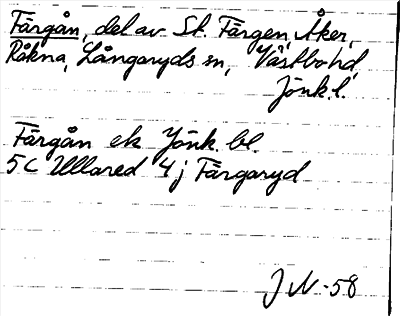 Färgån, del av St. Färgen, Åker,
Råkna, Långaryds sn, Västbo hd,
Jönk. l.
Färgån ek Jönk. bl.
5C Ullared 4j Färgaryd
JN-58